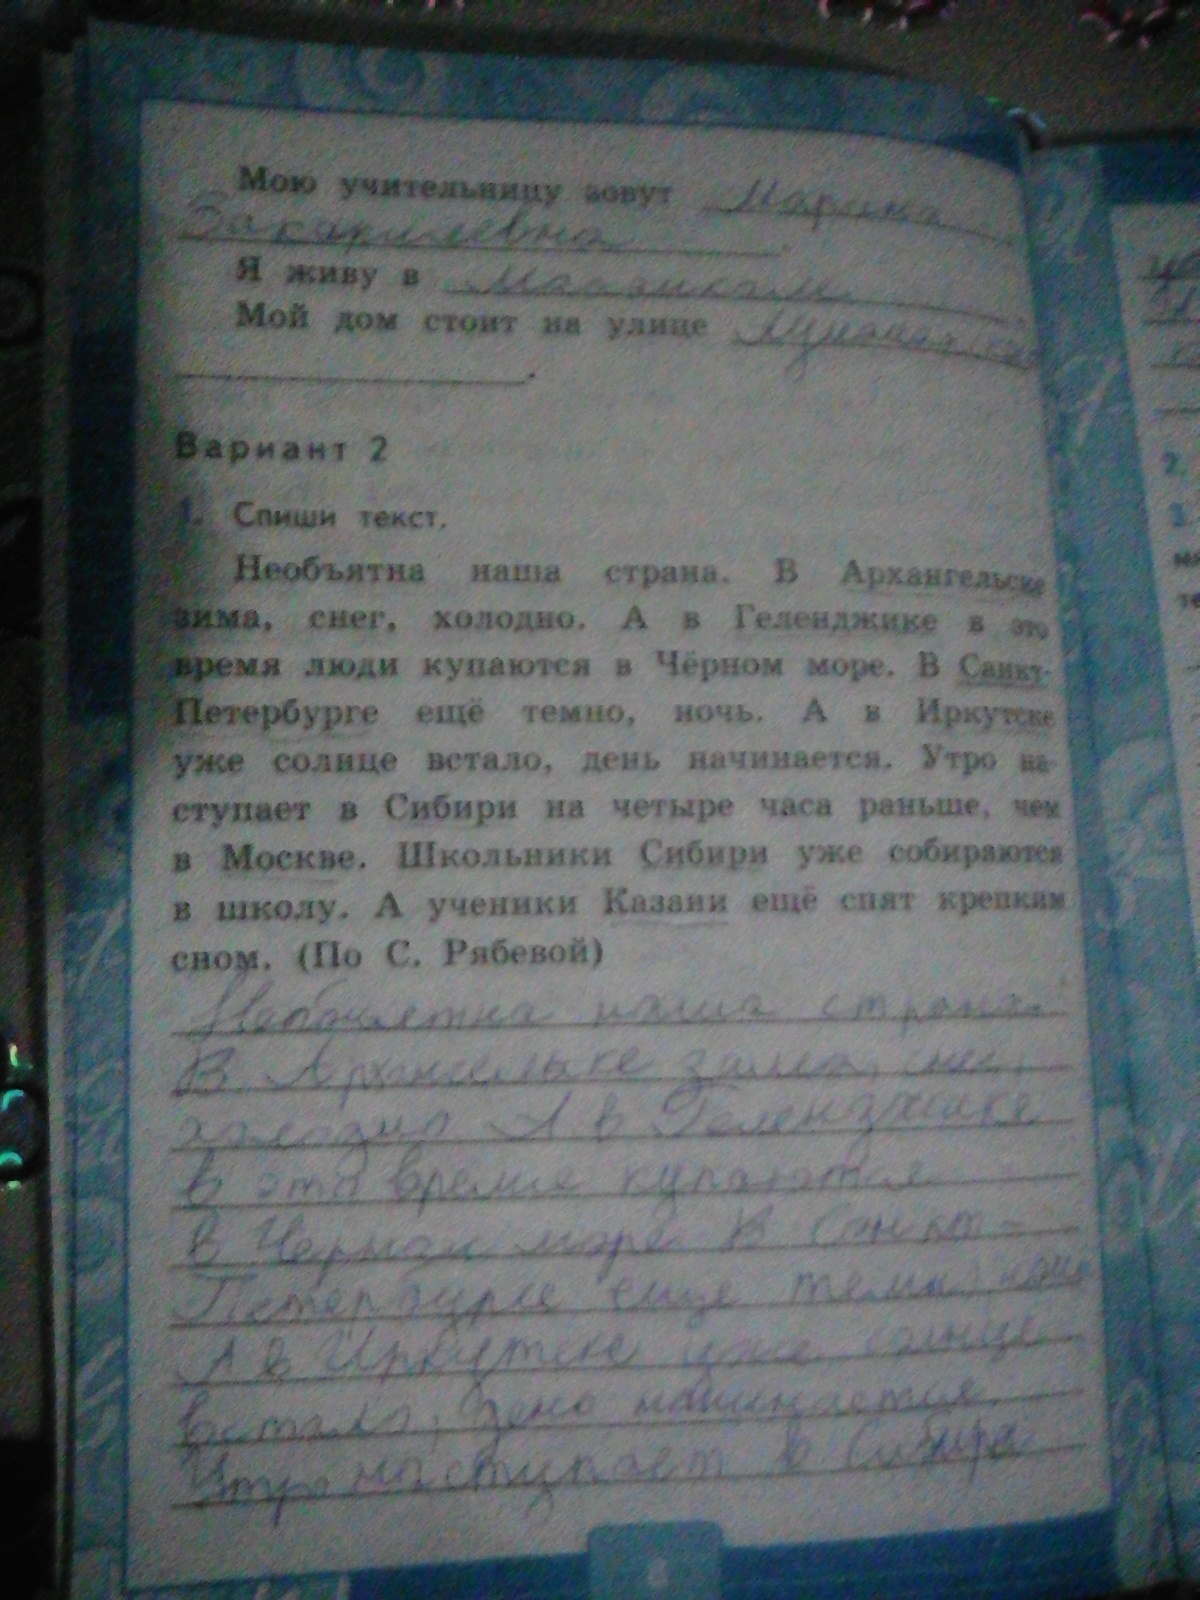 Мою учительницу зовут Марина
Закариевна.
Я живу в
Мой дом стоит на улице
Вариант 2
1. Спиши текст.
Необъятна наша страна. В Архангельске
зима, снег, холодно. А в Геленджике в это
время люди купаются в Чёрном море. В Санкт-
Петербурге ещё темно, ночь. А в Иркутске
уже солнце встало, день начинается. Утро на-
ступает в Сибири на четыре часа раньше, чем
в Москве. Школьники Сибири уже собираются
в школу. А ученики Казани ещё спят крепким
сном. (По С. Рябевой)
наша страна.
В зима, снег,
холодно А в Геленджике
в это время купаются
в море В Санкт-
Петербурге еще
А в Иркутске уже солнце
встало, день начинается.
Утро наступает в Сибири
8
2.
3.